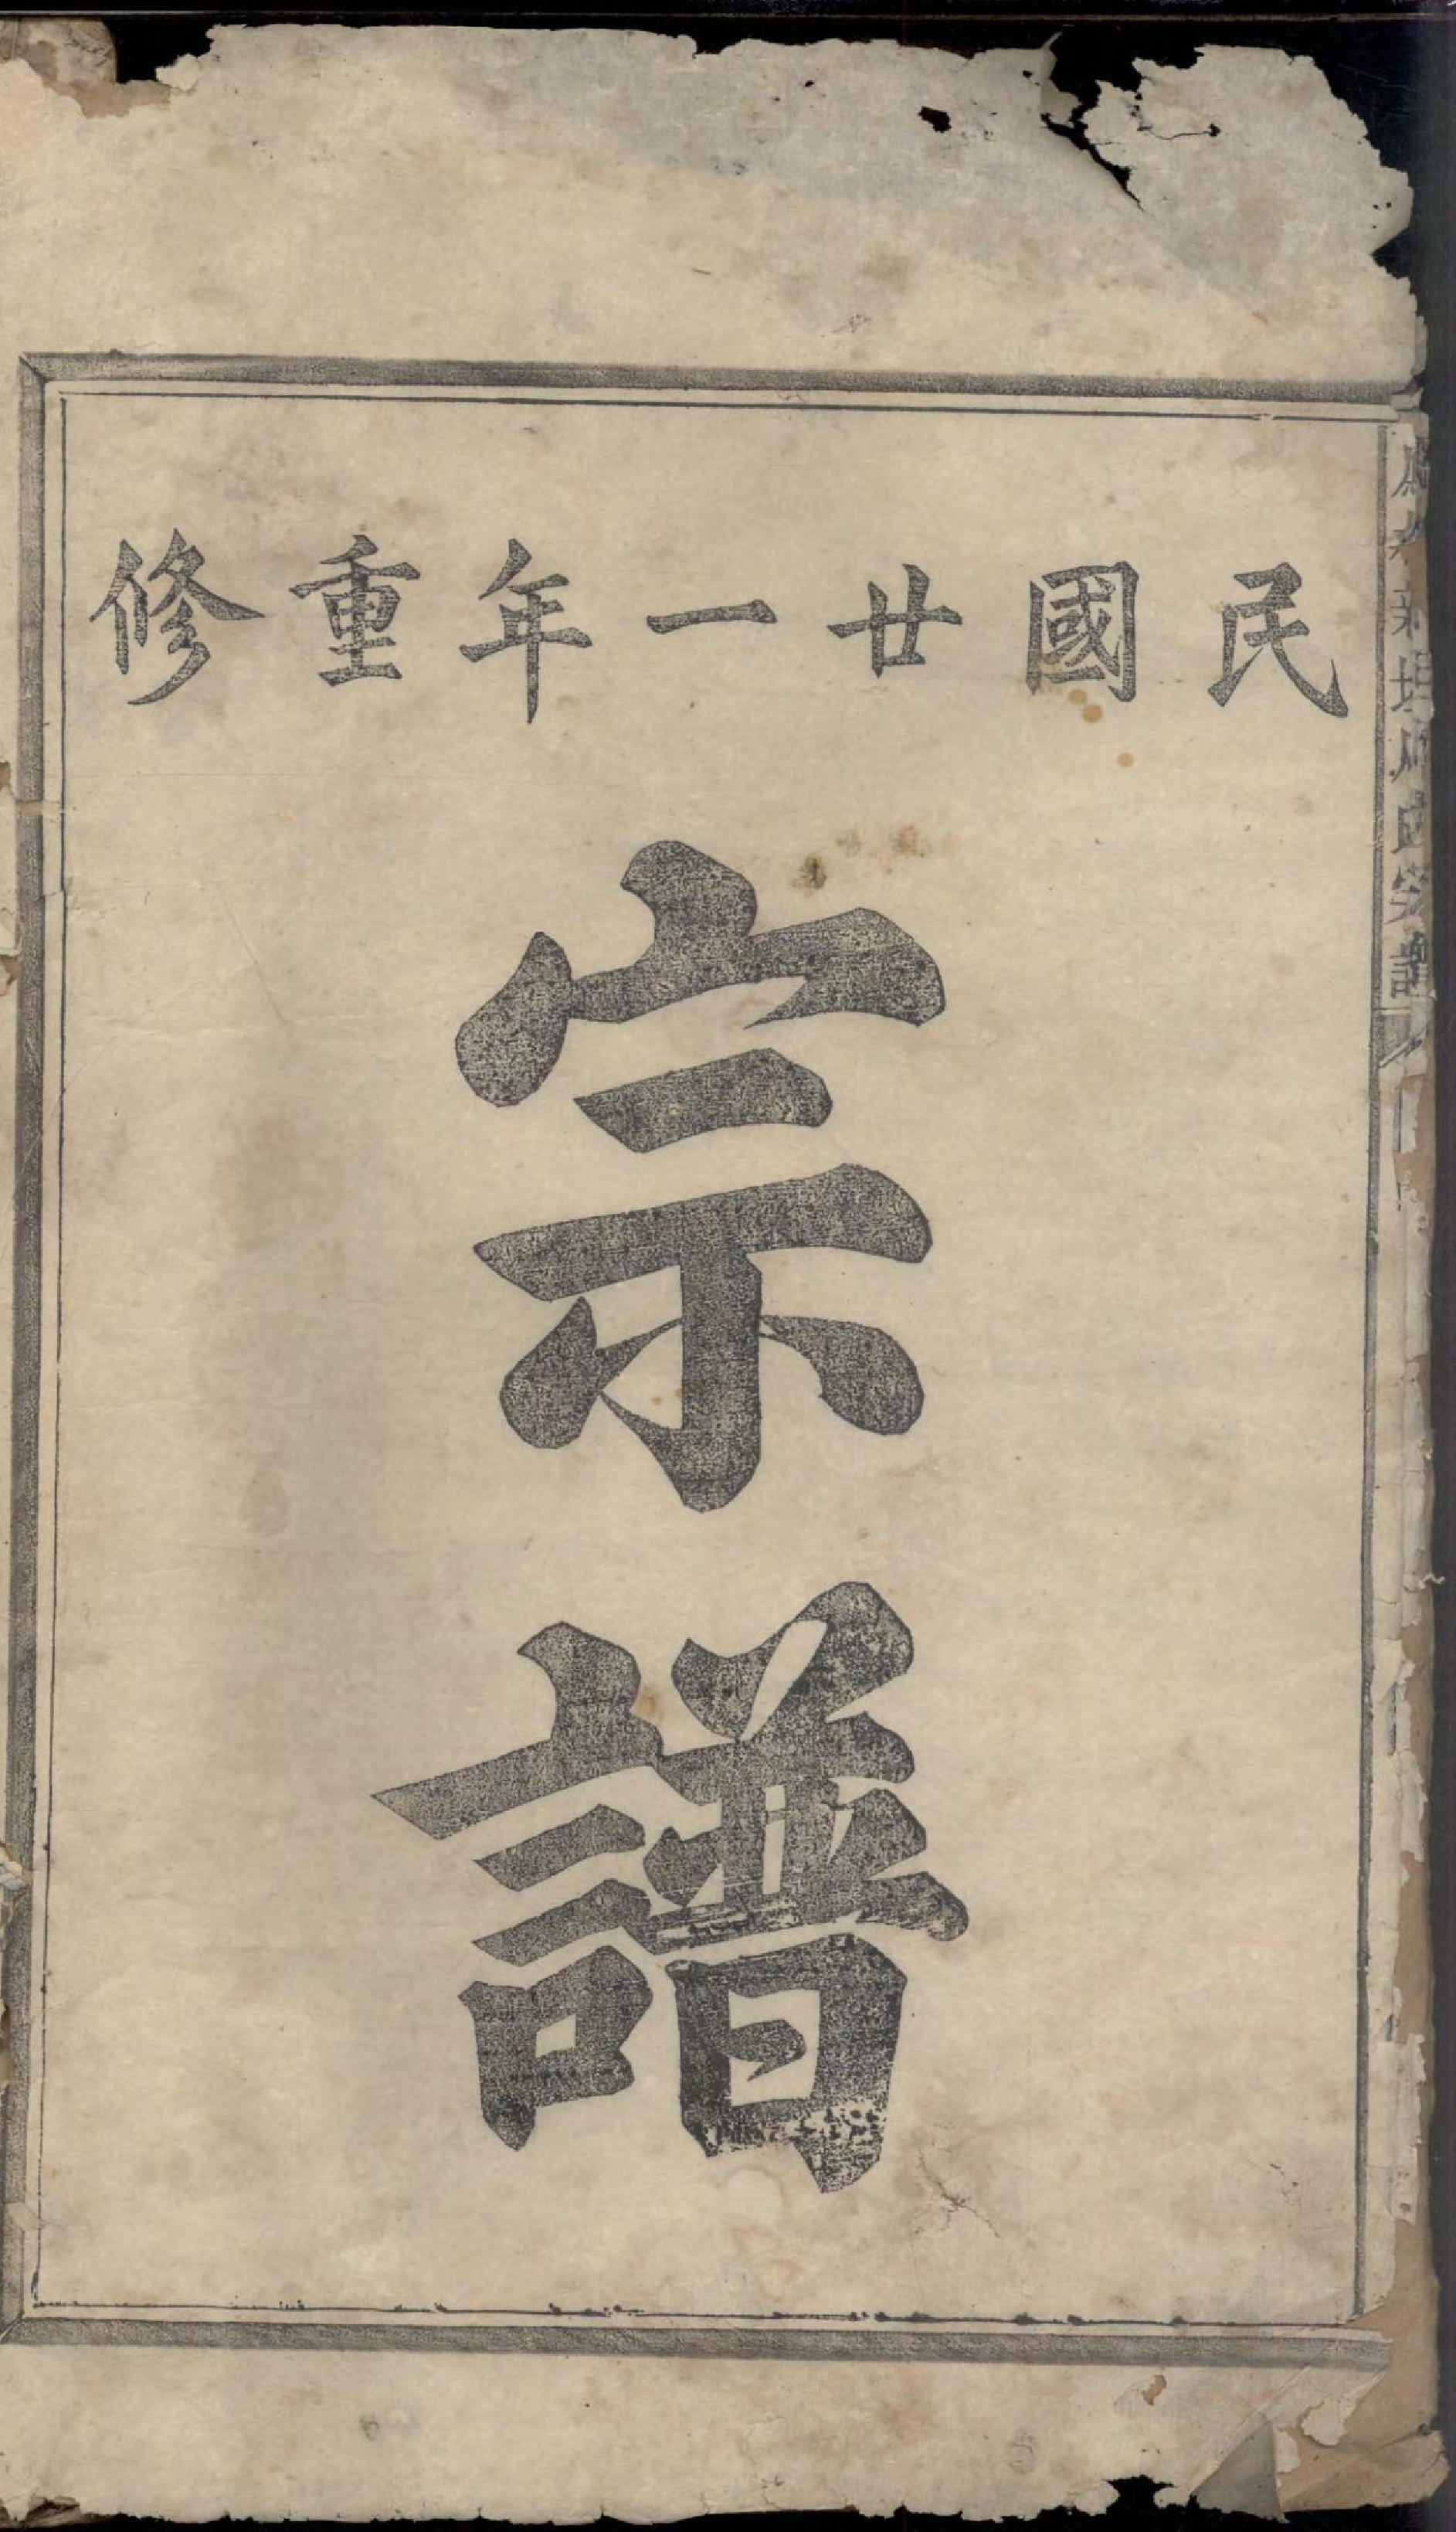 民國廿一年重修
宗譜
氏宗譜